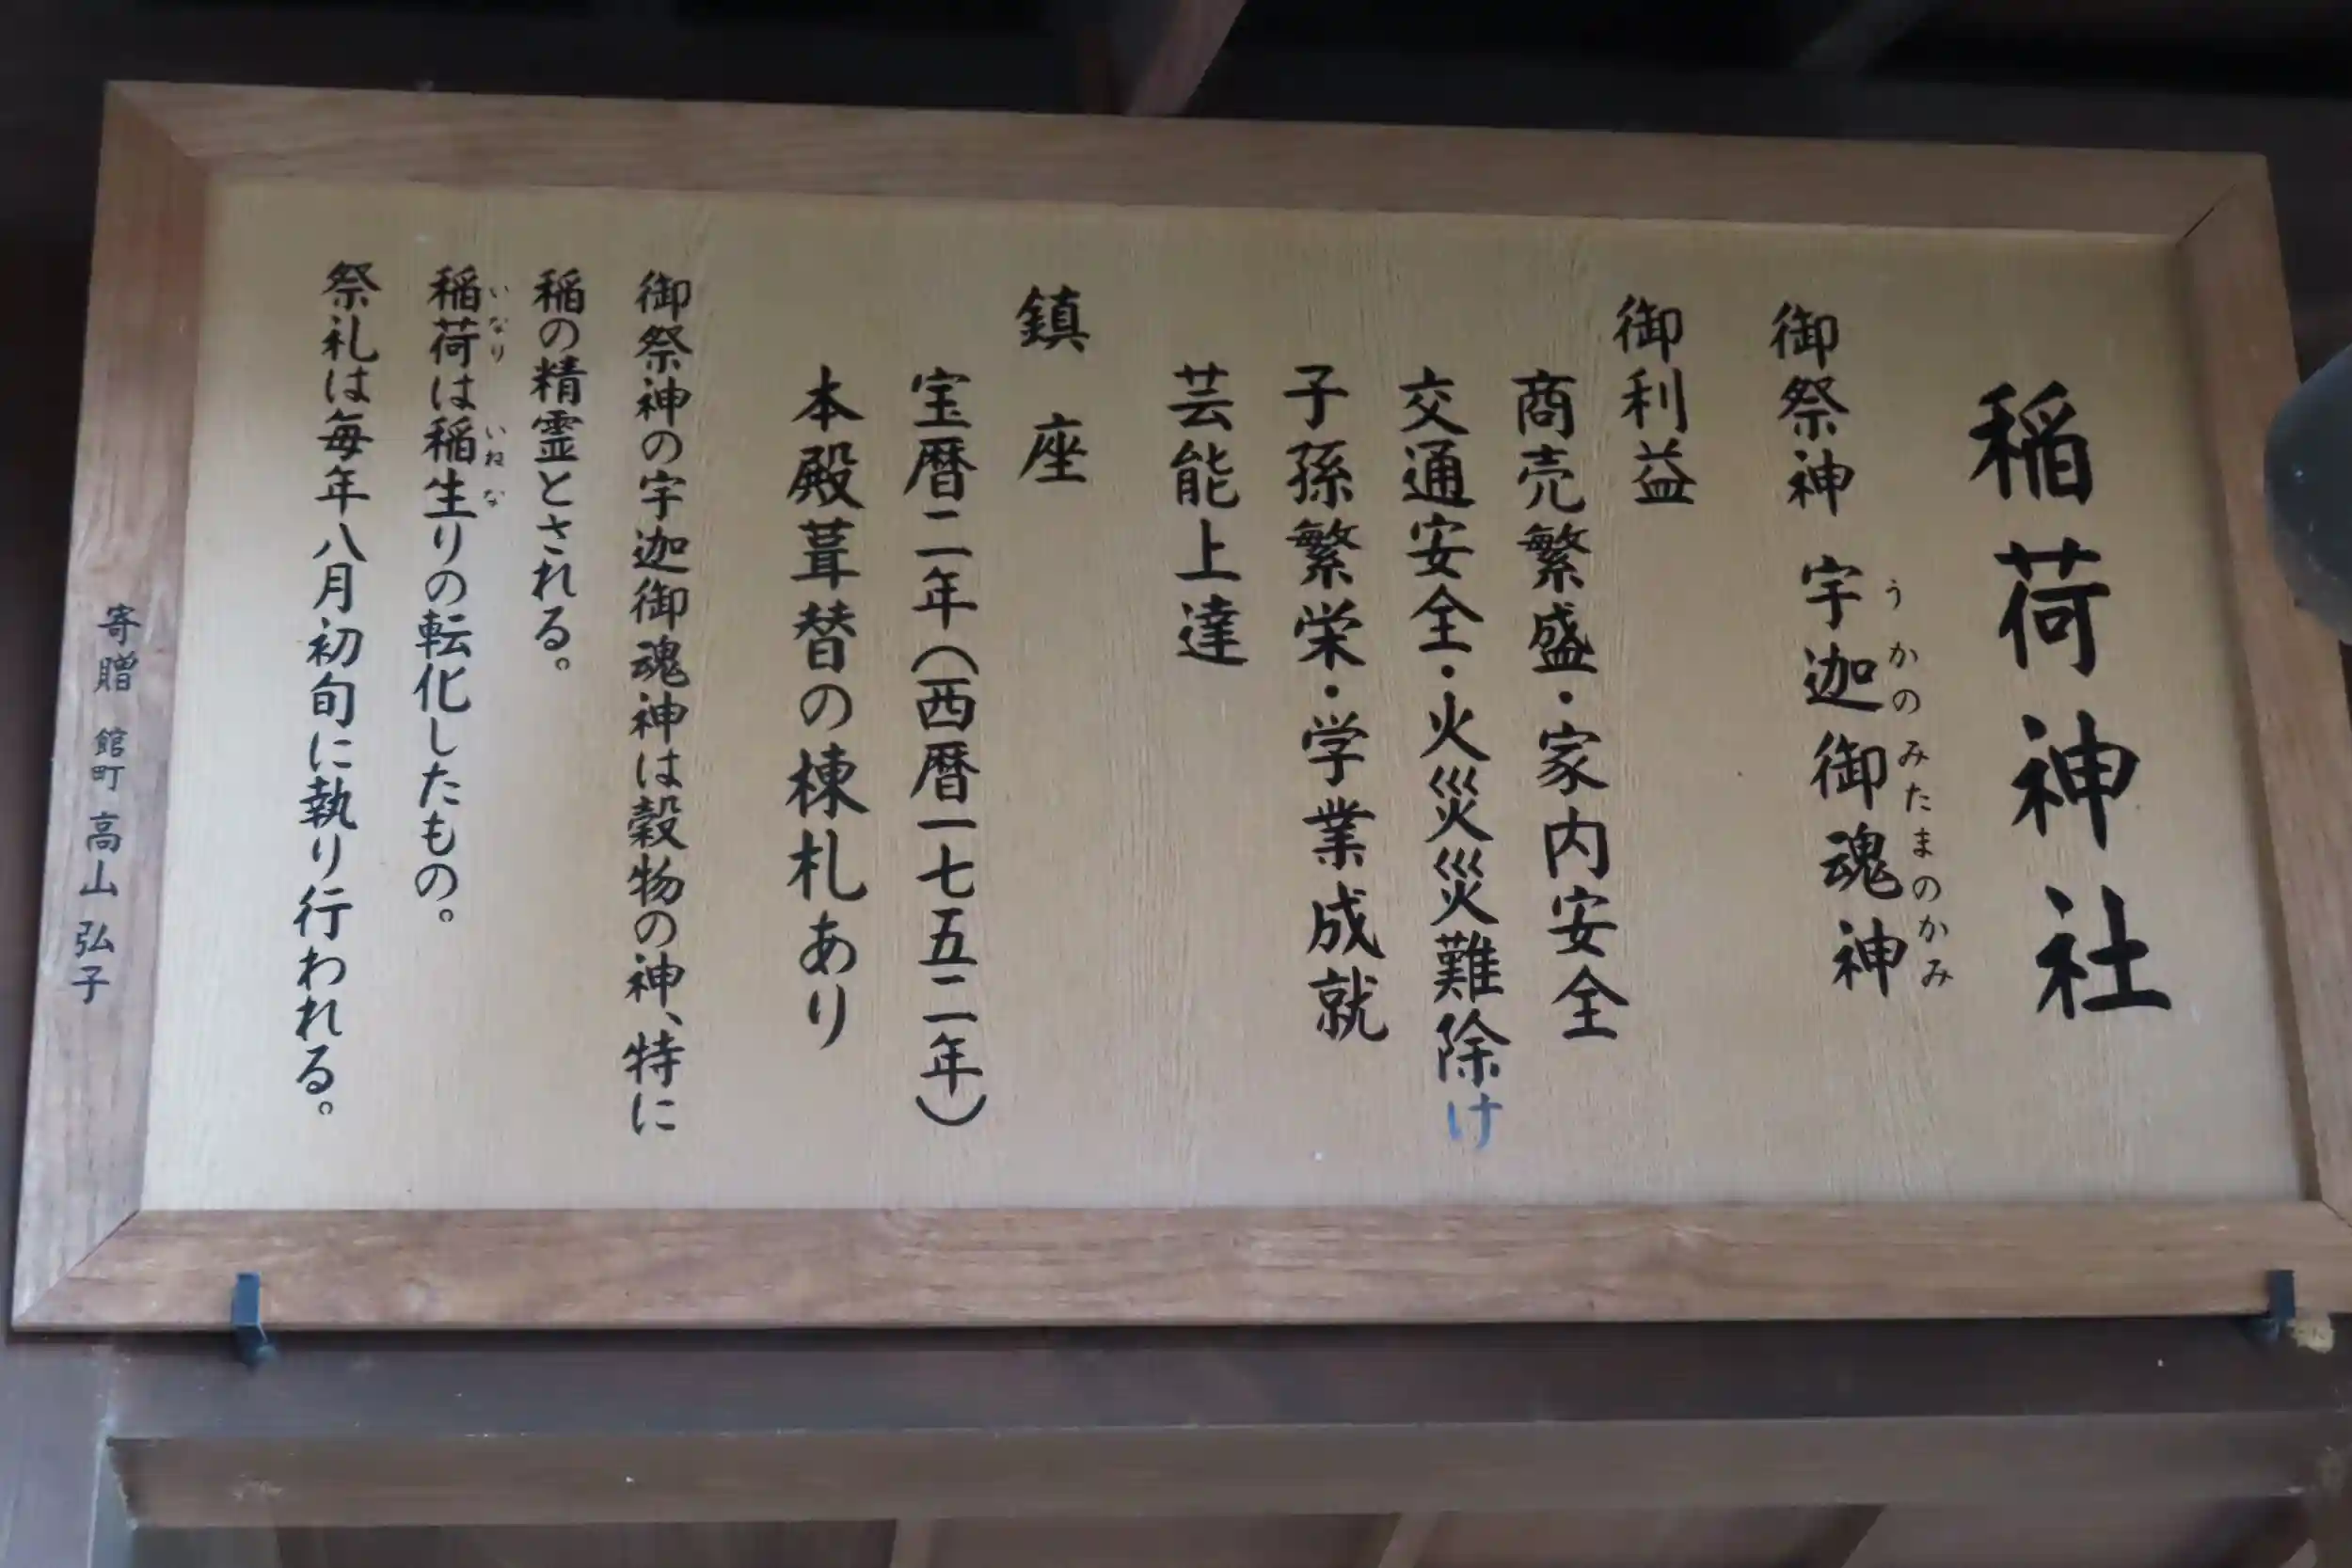 稲荷神社
御祭神 宇迦御魂神
うかのみたまのかみ
御利益
商売繁盛・家内安全
交通安全・火災災難除け
子孫繁栄・学業成就
芸能上達
鎮座
宝暦二年(西暦一七五二年)
本殿葺替の棟札あり
御祭神の宇迦御魂神は穀物の神、特に
稲の精霊とされる。
稲荷は稲生りの転化したもの。
いなり いねな
祭礼は毎年八月初旬に執り行われる。
寄贈 館町 高山弘子